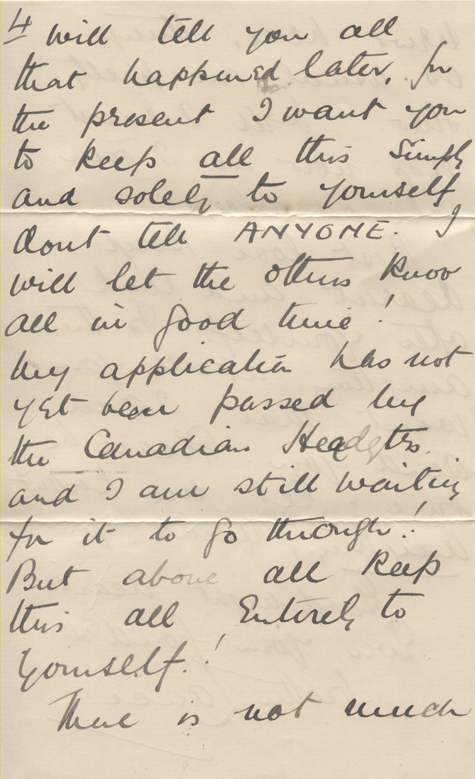 4
will tell you all
that happened later, for
the present I want you
to keep all this simply
and solely to yourself
dont tell ANYONE. I
will let the others know
all in good time!
My application has not
yet been passed by
the Canadian Headqtrs.
and I am still waiting
for it to go through!
But above all keep
this all Entirely to
Yourself!
There is not much